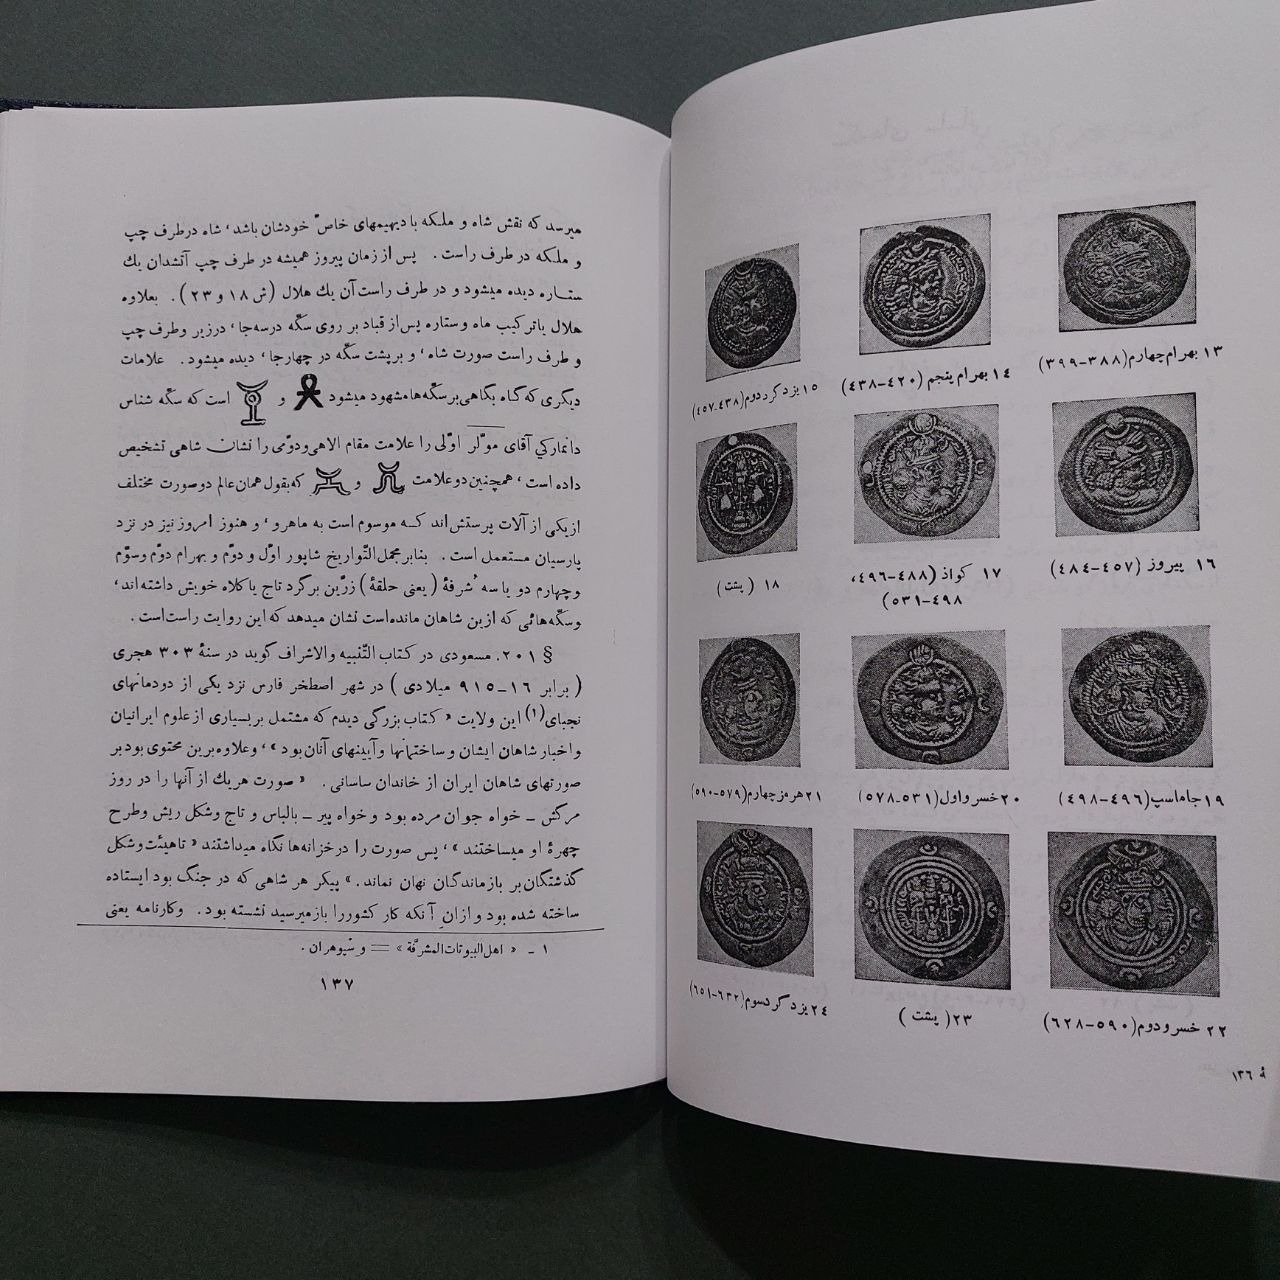 ۱۳ بهرام چهارم (۳۸۸-۳۹۹)
۱۴ بهرام پنجم (۴۲۰-۴۳۸)
۱۵ یزدگرد دوم (۴۳۸-۴۵۷)
۱۶ پیروز (۴۵۷-۴۸۴)
۱۷ کواذ (۴۸۸-۴۹۶،
۴۹۸-۵۳۱)
۱۸ (پشت)
۱۹ جاماسپ (۴۹۶-۴۹۸)
۲۰ خسرو اول (۵۳۱-۵۷۸)
۲۱ هرمز چهارم (۵۷۹-۵۹۰)
۲۲ خسرو دوم (۵۹۰-۶۲۸)
۲۳ (پشت)
۲۴ یزدگرد سوم (۶۳۲-۶۵۱)
۱۳۶
میرسد که نقش شاه و ملکه با دیهیمهای خاصّ خودشان باشد، شاه در طرف چپ
و ملکه در طرف راست. پس از زمان پیروز همیشه در طرف چپ آتشدان یك
ستاره دیده میشود و در طرف راست آن یك هلال (ش ۱۸ و ۲۳). بعلاوه
هلال یا ترکیب ماه و ستاره پس از قباد بر روی سکّه در سه جا، در زیر و طرف چپ
و طرف راست صورت شاه، و بر پشت سکّه در چهار جا، دیده میشود. علامات
دیگری که گاه بگاهی بر سکّه‌ها مشهود میشود و است که سکّه شناس
دانمارکی آقای موّلر اوّلی را علامت مقام الاهی و دوّمی را نشان شاهی تشخیص
داده است، همچنین دو علامت و که بقول همان عالم دو صورت مختلف
از یکی از آلات پرستش‌اند که موسوم است به ماهرو، و هنوز امروز نیز در نزد
پارسیان مستعمل است. بنابر مجمل التّواریخ شاپور اوّل و دوّم و بهرام دوّم و سوّم
و چهارم دو یا سه شُرفهٔ (یعنی حلقهٔ) زرّین بر گرد تاج یا کلاه خویش داشته‌اند،
و سکّه‌هائی که از ین شاهان مانده است نشان میدهد که این روایت راست است.
§ ۲۰۱. مسعودی در کتاب التّنبیه والاشراف گوید در سنهٔ ۳۰۳ هجری
(برابر ۱۶-۹۱۵ میلادی) در شهر اصطخر فارس نزد یکی از دودمانهای
نجبای(۱) این ولایت «کتاب بزرگی دیدم که مشتمل بر بسیاری از علوم ایرانیان
و اخبار شاهان ایشان و ساختمانها و آیینهای آنان بود»، و علاوه برین محتوی بود بر
صورتهای شاهان ایران از خاندان ساسانی. «صورت هر یك از آنها را در روز
مرگش ـ خواه جوان مرده بود و خواه پیر ـ بالباس و تاج و شکل ریش و طرح
چهرهٔ او میساختند»، پس صورت را در خزانه‌ها نگاه میداشتند «تاهیئت و شکل
گذشتگان بر بازماندگان نهان نماند.» پیکر هر شاهی که در جنگ بود ایستاده
ساخته شده بود و از ان آنکه کار کشور را باز میرسید نشسته بود. و کارنامه یعنی
۱ ـ «اهل البیوتات المشرّفة» = وسپوهران.
۱۳۷